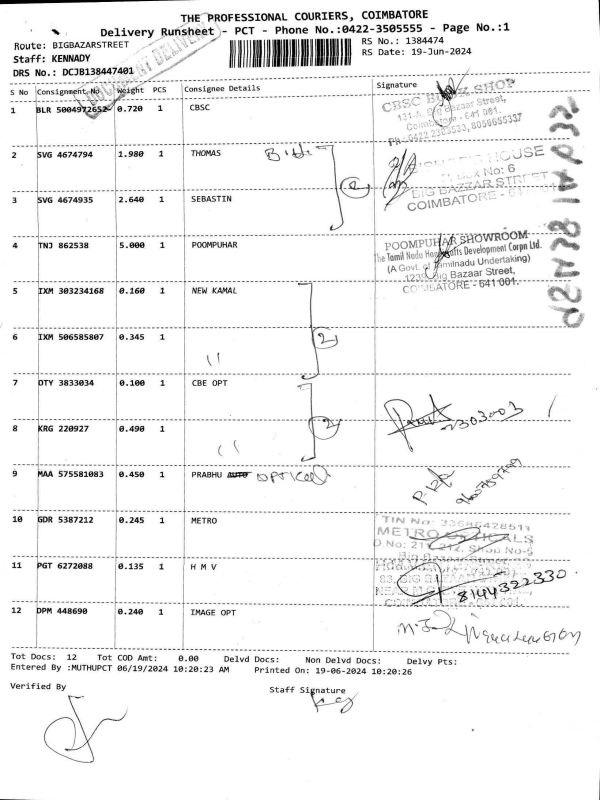 THE PROFESSIONAL COURIERS, COIMBATORE
Delivery Runsheet - PCT - Phone No.:0422-3505555 - Page No.:1
Route: BIGBAZARSTREET
RS No.: 1384474
Staff: KENNADY
RS Date: 19-Jun-2024
DRS No.: DCJB138447401
S No Consignment No Weight PCS Consignee Details Signature
1 BLR 5004972652 0.720 1 CBSC
CBSC SHOP
Big Bazaar Street,
Coimbatore - 641 001.
Ph: 0422 2383533, 8056655337
2 SVG 4674794 1.980 1 THOMAS
2
HOUSE
Box No: 6
BIG BAZZAR STREET
COIMBATORE - 641
3 SVG 4674935 2.640 1 SEBASTIN
4 TNJ 862538 5.000 1 POOMPUHAR
POOMPUHAR SHOWROOM
The Tamil Nadu Handicrafts Development Corpn Ltd.
(A Govt. of Tamilnadu Undertaking)
Big Bazaar Street,
COIMBATORE - 641 001.
5 IXM 303234168 0.160 1 NEW KAMAL
2
6 IXM 506585807 0.345 1
7 OTY 3833034 0.100 1 CBE OPT
2
2303003
8 KRG 220927 0.490 1
9 MAA 575581083 0.450 1 PRABHU AUTO OPTICAL
10 GDR 5387212 0.245 1 METRO
TIN No: 33686428511
METRO OPTICALS
D.No: 211, 212, Shop No-5
Big Bazaar
11 PGT 6272088 0.135 1 H M V
83, BIG BAZAAR
8144322330
12 DPM 448690 0.240 1 IMAGE OPT
Tot Docs: 12 Tot COD Amt: 0.00 Delvd Docs: Non Delvd Docs: Delvy Pts:
Entered By :MUTHUPCT 06/19/2024 10:20:23 AM Printed On: 19-06-2024 10:20:26
Verified By
Staff Signature